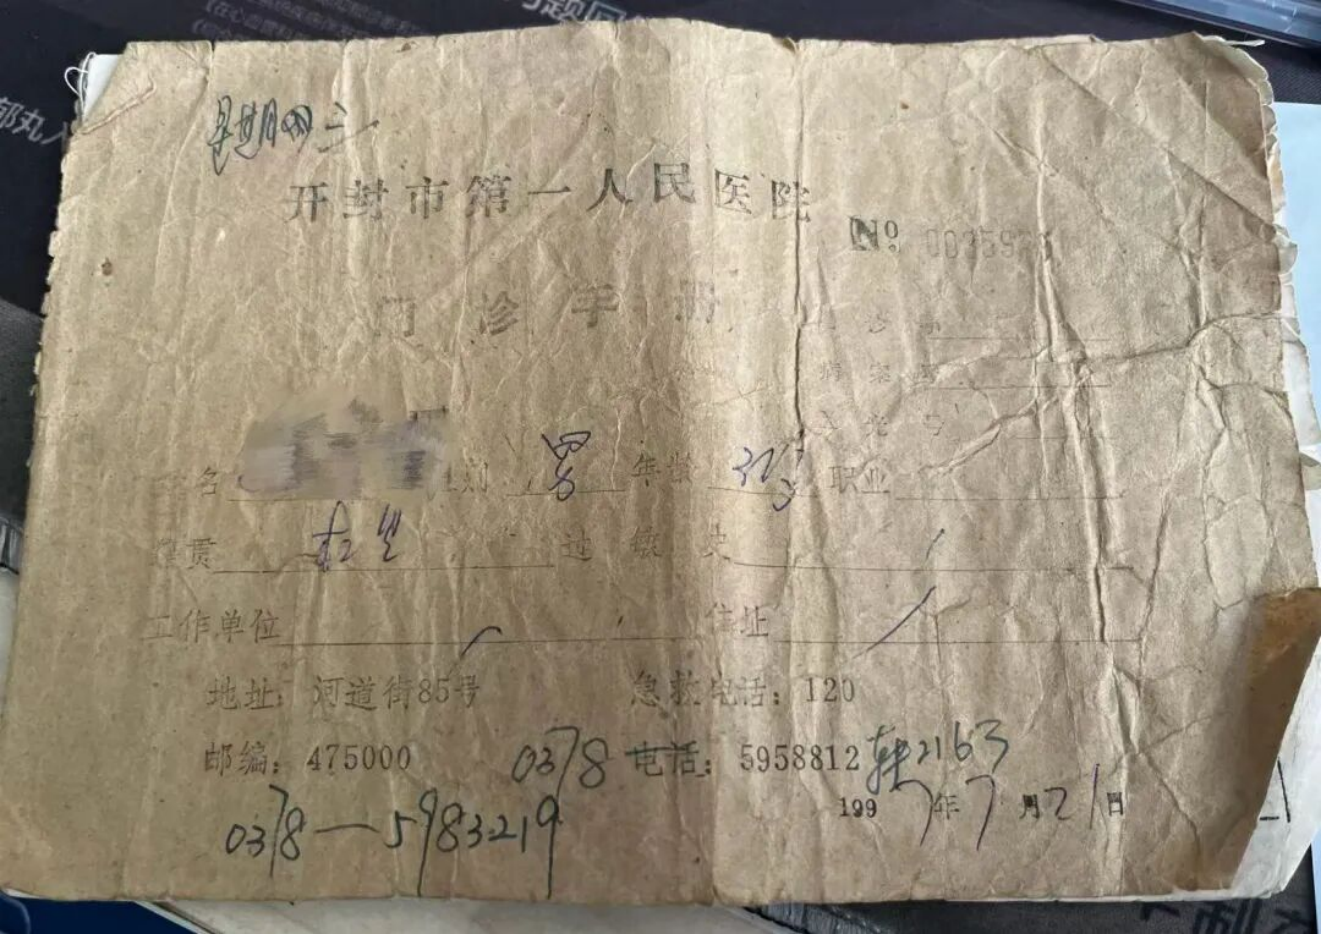 星期四三
开封市第一人民医院
№
门诊手册
病案号
名 性别 男 年龄 职业
籍贯 杞县 过敏史 /
工作单位 / 住址 /
地址：河道街85号 急救电话：120
邮编：475000 0378 电话：5958812转2163
1997年7月21日
0378—5983219